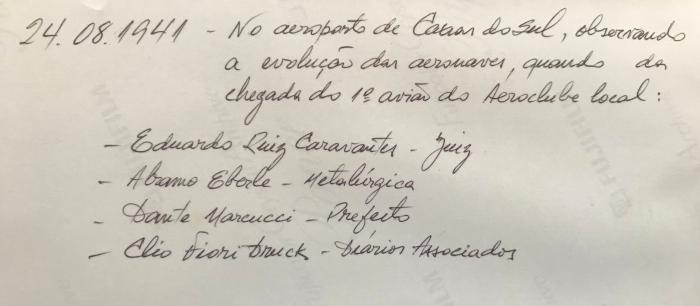 24.08.1941 - No aeroporto de Caxias do Sul, observando
a evolução das aeronaves, quando da
chegada do 1º avião do Aeroclube local:
- Eduardo Luiz Caravantes - Juiz
- Abramo Eberle - Metalúrgica
- Dante Marcucci - Prefeito
- Clio Fiori Druck - Diários Associados
FUJIFILM